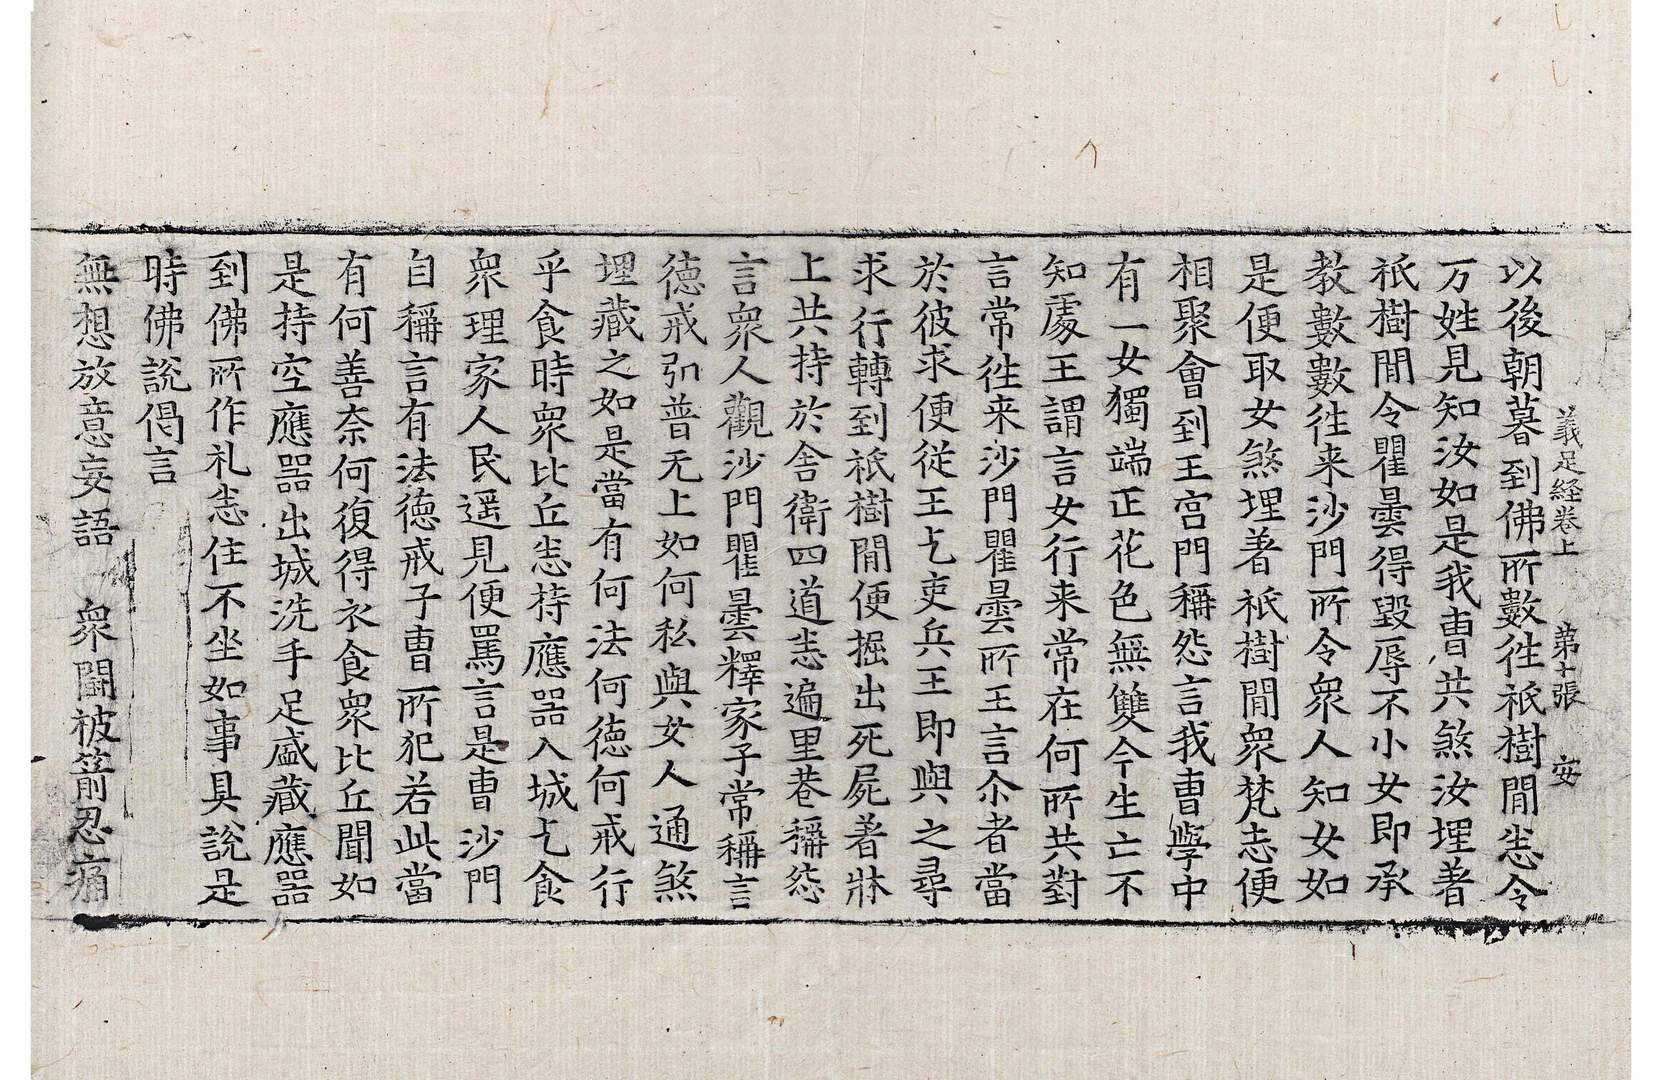 義足経卷上 第十張 安
以後朝暮到佛所數徃祇樹間悉令
万姓見知汝如是我曹共煞汝埋著
祇樹間令瞿曇得毀辱不小女即承
教數數徃来沙門所令衆人知女如
是便取女煞埋著祇樹間衆梵志便
相聚會到王宫門稱怨言我曹學中
有一女獨端正花色無雙今生亡不
知處王謂言女行来常在何所共對
言常徃来沙門瞿曇所王言尒者當
於彼求便従王乞吏兵王即與之尋
求行轉到祇樹間便掘出死屍著牀
上共持於舎衛四道悉遍里巷稱怨
言衆人觀沙門瞿曇釋家子常稱言
徳戒弘普无上如何私與女人通煞
埋藏之如是當有何法何徳何戒行
乎食時衆比丘悉持應噐入城乞食
衆理家人民遥見便罵言是曹沙門
自稱言有法徳戒子曹所犯若此當
有何善奈何復得衣食衆比丘聞如
是持空應噐出城洗手足盛藏應噐
到佛所作礼悉住不坐如事具說是
時佛說偈言
無想放意妄語　衆鬪被箭忍痛